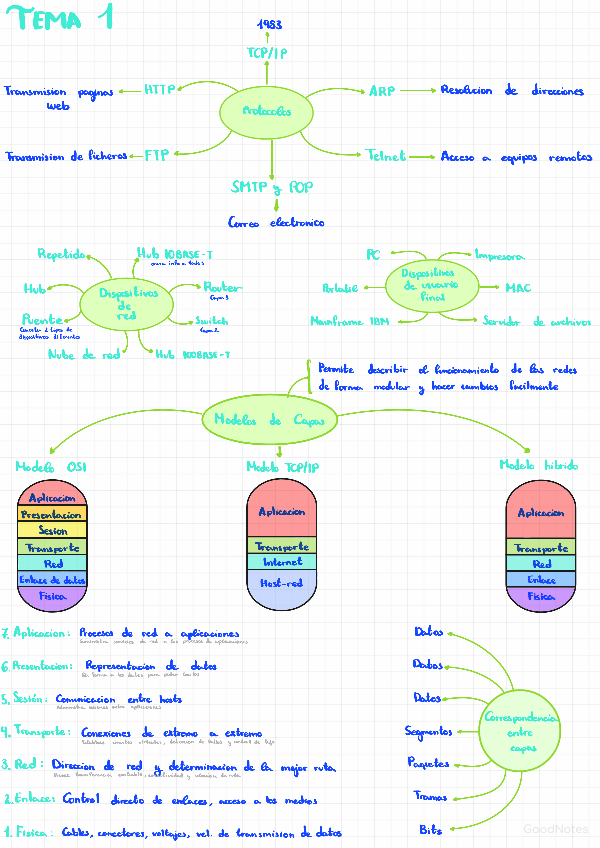 TEMA 1
1983
TCP/IP
HTTP
Transmision paginas
web
ARP
Resolucion de direcciones
Protocolos
FTP
Transmision de ficheros
Telnet
Acceso a equipos remotos
SMTP y POP
Correo electronico
Repetido
Hub 10BASE-T
Hub
Router
Capa 3
Dispositivos
de
red
Puente
Conectar 2 tipos de
dispositivos diferentes
Switch
Capa 2
Nube de red
Hub 100BASE-T
PC
Impresora
Portatil
Dispositivos
de usuario
final
MAC
Mainframe IBM
Servidor de archivos
Permite describir el funcionamiento de las redes
de forma modular y hacer cambios facilmente
Modelos de Capas
Modelo OSI
Aplicacion
Presentacion
Sesion
Transporte
Red
Enlace de datos
Fisica
Modelo TCP/IP
Aplicacion
Transporte
Internet
Host-red
Modelo hibrido
Aplicacion
Transporte
Red
Enlace
Fisica
7. Aplicacion: Procesos de red a aplicaciones
6. Presentacion: Representacion de datos
5. Sesión: Comunicacion entre hosts
4. Transporte: Conexiones de extremo a extremo
3. Red: Direccion de red y determinacion de la mejor ruta
2. Enlace: Control directo de enlaces, acceso a los medios
1. Fisica: Cables, conectores, voltajes, vel. de transmision de datos
Datos
Datos
Datos
Segmentos
Paquetes
Tramas
Bits
Correspondencia
entre
capas
GoodNotes